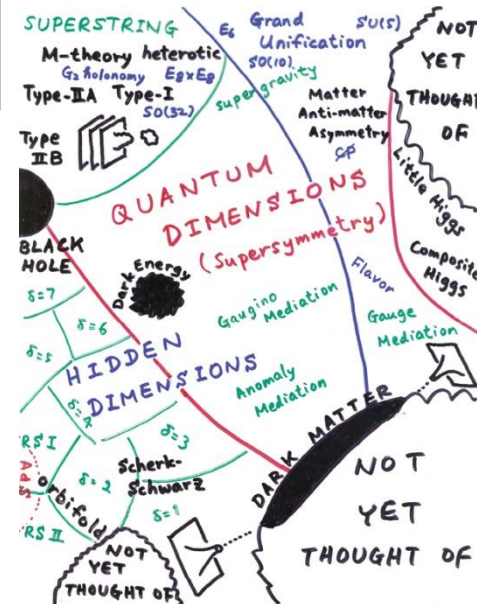 SUPERSTRING
M-theory heterotic
G₂ holonomy E8×E8
Type-IIA Type-I
SO(32)
Type
IIB
E6
Grand
Unification
SU(5)
SO(10)
supergravity
Matter
Anti-matter
Asymmetry
CP
NOT
YET
THOUGHT
OF
Little Higgs
Composite
Higgs
QUANTUM
DIMENSIONS
(Supersymmetry)
BLACK
HOLE
Dark Energy
Flavor
Gaugino
Mediation
Gauge
Mediation
Anomaly
Mediation
δ=7
δ=6
δ=5
HIDDEN
DIMENSIONS
δ=4
δ=3
RS I
AdS
Scherk-
Schwarz
δ=2
orbifold
δ=1
RS II
NOT
YET
THOUGHT OF
DARK MATTER
NOT
YET
THOUGHT OF